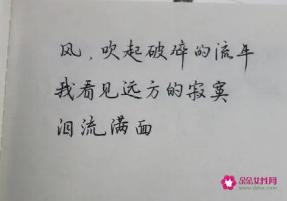 风，吹起破碎的流年
我看见远方的寂寞
泪流满面
朵朵女性网